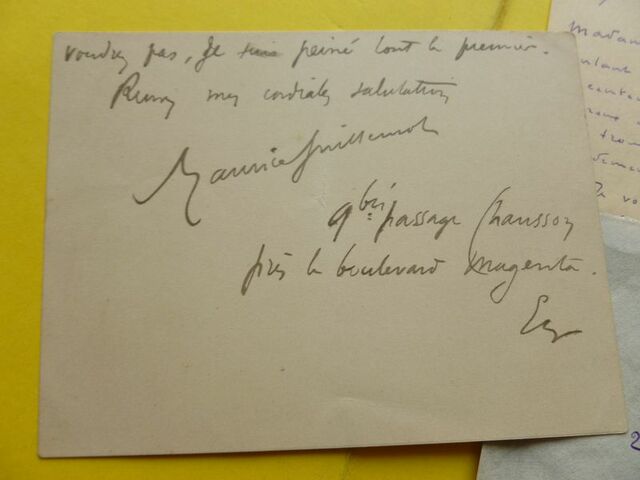 voudrez pas, Je suis peiné tout le premier.
Recevez mes cordiales salutations
Maurice Guillemot
9 bis passage Chausson
près le boulevard Magenta.
Madame